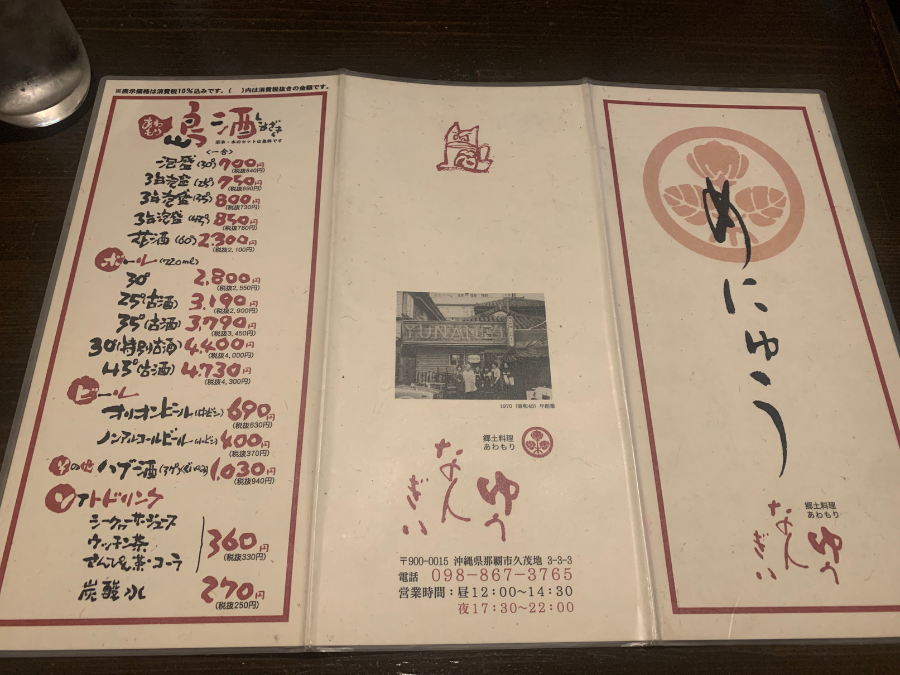 ※表示価格は消費税10%込みです。(　)内は消費税抜きの金額です。
あわもり 島酒
<一合>
泡盛(30°) 700円
(税抜640円)
3年泡盛(25°) 750円
(税抜690円)
3年泡盛(35°) 800円
(税抜730円)
3年泡盛(43°) 850円
(税抜780円)
花酒(60°) 2.300円
(税抜2,100円)
ボトル(720ml)
30° 2.800円
(税抜2,550円)
25°(古酒) 3.190円
(税抜2,900円)
35°(古酒) 3.790円
(税抜3,450円)
30°(特別古酒) 4.400円
(税抜4,000円)
43°(古酒) 4.730円
(税抜4,300円)
ビール
オリオンビール(中ビン) 690円
(税抜630円)
ノンアルコールビール(小ビン) 400円
(税抜370円)
その他 ハブ酒 1.030円
(税抜940円)
ソフトドリンク
シークヮーサージュース
ウッチン茶
さんぴん茶・コーラ
360円
(税抜330円)
炭酸水 270円
(税抜250円)
YUNANGI
1970 (昭和45) 年創業
郷土料理
あわもり
ゆうなんぎい
〒900-0015 沖縄県那覇市久茂地 3-3-3
電話 098-867-3765
営業時間：昼12:00～14:30
夜17:30～22:00
めにゅう
郷土料理
あわもり
ゆうなんぎい